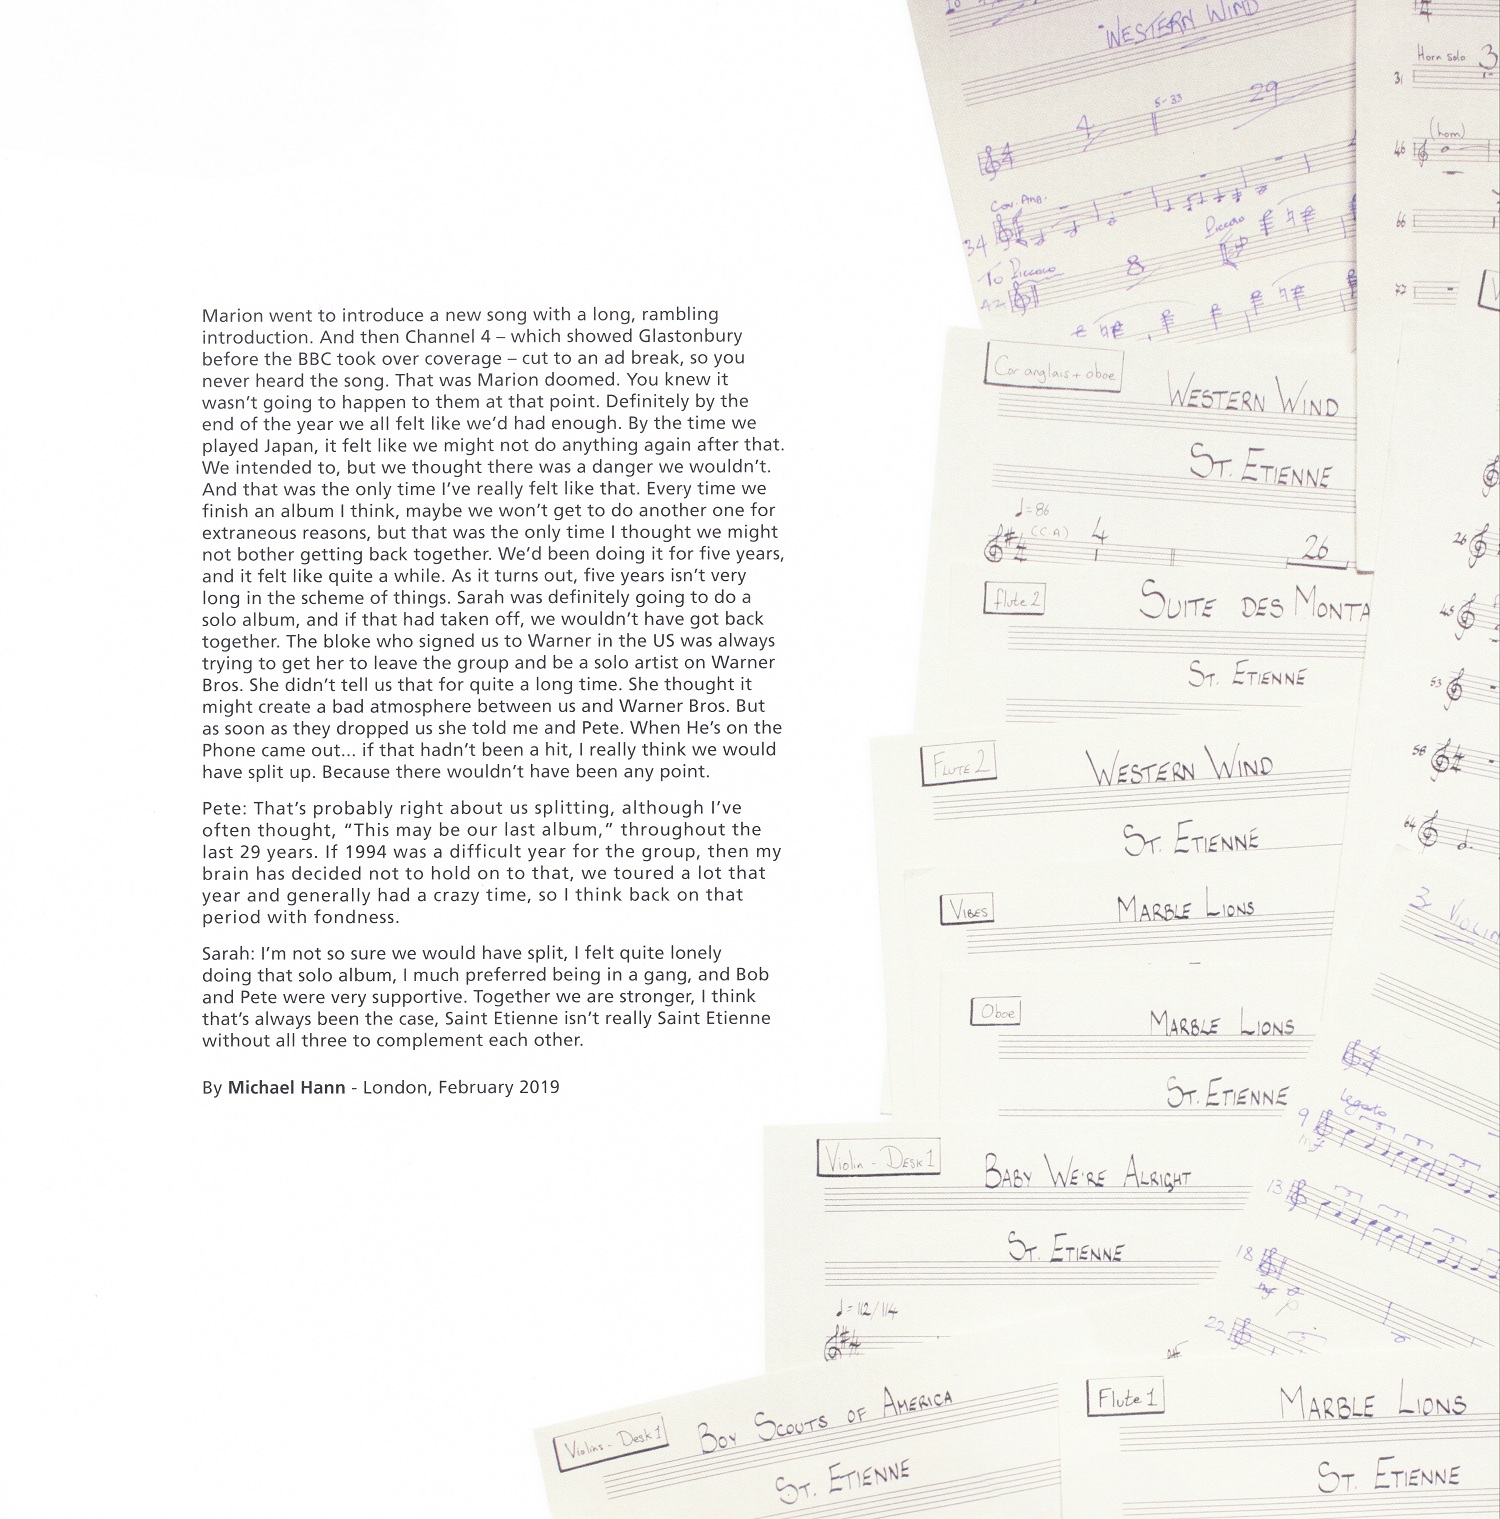 Marion went to introduce a new song with a long, rambling
introduction. And then Channel 4 – which showed Glastonbury
before the BBC took over coverage – cut to an ad break, so you
never heard the song. That was Marion doomed. You knew it
wasn't going to happen to them at that point. Definitely by the
end of the year we all felt like we'd had enough. By the time we
played Japan, it felt like we might not do anything again after that.
We intended to, but we thought there was a danger we wouldn't.
And that was the only time I've really felt like that. Every time we
finish an album I think, maybe we won't get to do another one for
extraneous reasons, but that was the only time I thought we might
not bother getting back together. We'd been doing it for five years,
and it felt like quite a while. As it turns out, five years isn't very
long in the scheme of things. Sarah was definitely going to do a
solo album, and if that had taken off, we wouldn't have got back
together. The bloke who signed us to Warner in the US was always
trying to get her to leave the group and be a solo artist on Warner
Bros. She didn't tell us that for quite a long time. She thought it
might create a bad atmosphere between us and Warner Bros. But
as soon as they dropped us she told me and Pete. When He's on the
Phone came out... if that hadn't been a hit, I really think we would
have split up. Because there wouldn't have been any point.
Pete: That's probably right about us splitting, although I've
often thought, “This may be our last album,” throughout the
last 29 years. If 1994 was a difficult year for the group, then my
brain has decided not to hold on to that, we toured a lot that
year and generally had a crazy time, so I think back on that
period with fondness.
Sarah: I'm not so sure we would have split, I felt quite lonely
doing that solo album, I much preferred being in a gang, and Bob
and Pete were very supportive. Together we are stronger, I think
that's always been the case, Saint Etienne isn't really Saint Etienne
without all three to complement each other.
By Michael Hann - London, February 2019
WESTERN WIND
4
5-33
29
Cor. Ang.
34
To Piccolo
8
Piccolo
42
Horn solo
3
31
(horn)
46
66
72
Cor anglais + oboe
WESTERN WIND
ST. ETIENNE
♩=86
(C.A)
4
26
flute 2
SUITE DES MONTA
ST. ETIENNE
FLUTE 2
WESTERN WIND
ST. ETIENNE
VIBES
MARBLE LIONS
Oboe
MARBLE LIONS
ST. ETIENNE
26
45
53
58
64
3 VIOLIN
legato
9
mf
13
18
mf
22
Violin - DESK 1
BABY WE'RE ALRIGHT
ST. ETIENNE
♩=112/114
Violins - Desk 1
BOY SCOUTS OF AMERICA
ST. ETIENNE
Flute 1
MARBLE LIONS
ST. ETIENNE